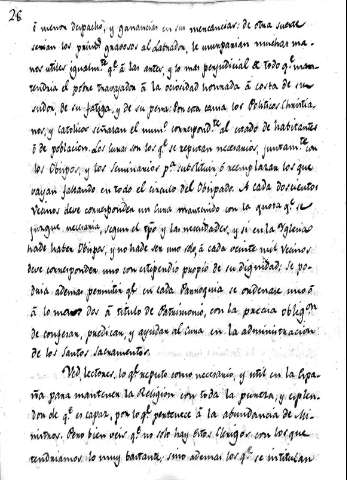 28
ó menor despacho, y ganancias en sus mercancias: de otra suerte
serian los privilegs gravosos al Labrador, le usurparian muchas ma-
nos utiles igualmte qe á las artes, y lo mas perjudicial es todo qe man-
tendria el pobre travajador á la ociosidad honrada á costa de su
sudor, de su fatiga, y de su pena: Con esta causa los Politicos Christia-
nos, y catolicos señalan el numo correspondte al estado de habitantes
ó de poblacion. Los Curas son los qe se reputan necesarios, juntamte con
los Obispos, y los Seminarios pa substituir ó reemplazar los que
vayan faltando en todo el circulo del Obispado. A cada doscientos
Vecinos deve corresponder un Cura mantenido con la quota qe se
juzgue necesaria, segun el tpo y las necesidades, y si en la Yglesia
hade haber Obispos, y no hade ser uno solo á cada veinte mil Vecinos
deve corresponder uno con estipendio propio de su dignidad; Se po-
dria ademas permitir qe en cada Parroquia se ordenase uno ó
á lo mas dos á titulo de Patrimonio, con la precisa obligon
de confesar, predicar, y ayudar al Cura en la administracion
de los Santos Sacramentos.
Ved, lectores, lo qe reputo como necesario, y util en la Espa-
ña para mantener la Religion con toda la pureza, y esplen-
dor de qe es capaz, por lo qe pertenece á la abundancia de Mi-
nistros. Pero bien veis qe no solo hay estos Clerigos con los que
tendriamos lo muy bastante, sino ademas los qe se intitulan